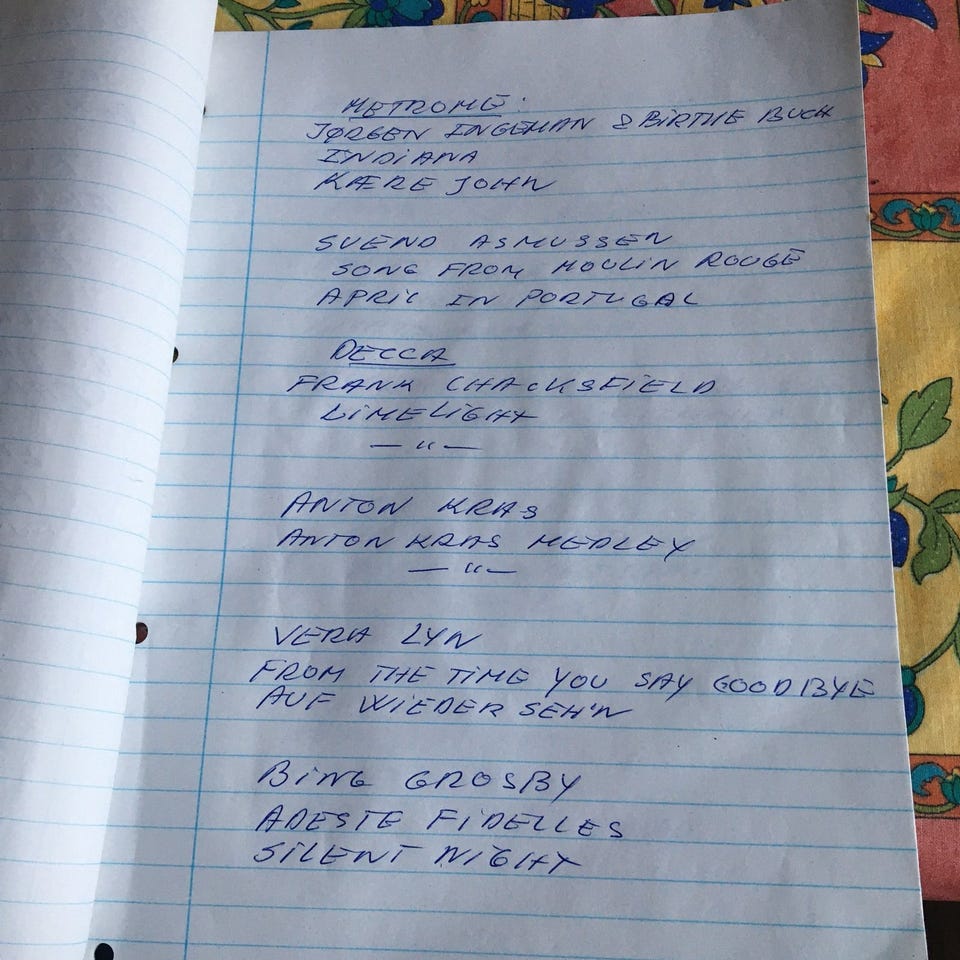 METROME:
JØRGEN INGEMAN & BIRTHE BUCH
INDIANA
KÆRE JOHN
SVEND ASMUSSEN
SONG FROM MOULIN ROUGE
APRIL IN PORTUGAL
DECCA
FRANK CHACKSFIELD
LIMELIGHT
— " —
ANTON KRAS
ANTON KRAS MEDLEY
— " —
VERA LYN
FROM THE TIME YOU SAY GOODBYE
AUF WIEDER SEH'N
BING CROSBY
ADESTE FIDELLES
SILENT NIGHT